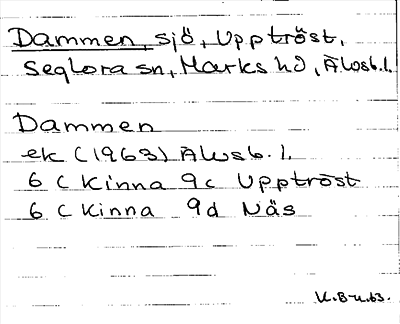 Dammen, sjö, Upptröst,
Seglora sn, Marks hd, Älvsb. l.
Dammen
ek (1963) Älvsb. l.
6 C Kinna 9c Upptröst
6 C Kinna 9d Näs
K.B-n.63.